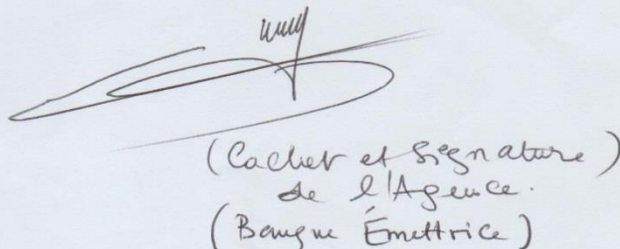 (Cachet et Signature)
de l'Agence.
(Banque Émettrice)